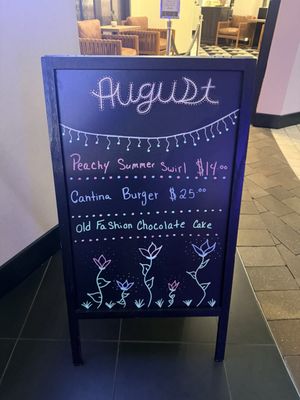 August
Peachy Summer Swirl $14.00
Cantina Burger $25.00
Old Fashion Chocolate Cake